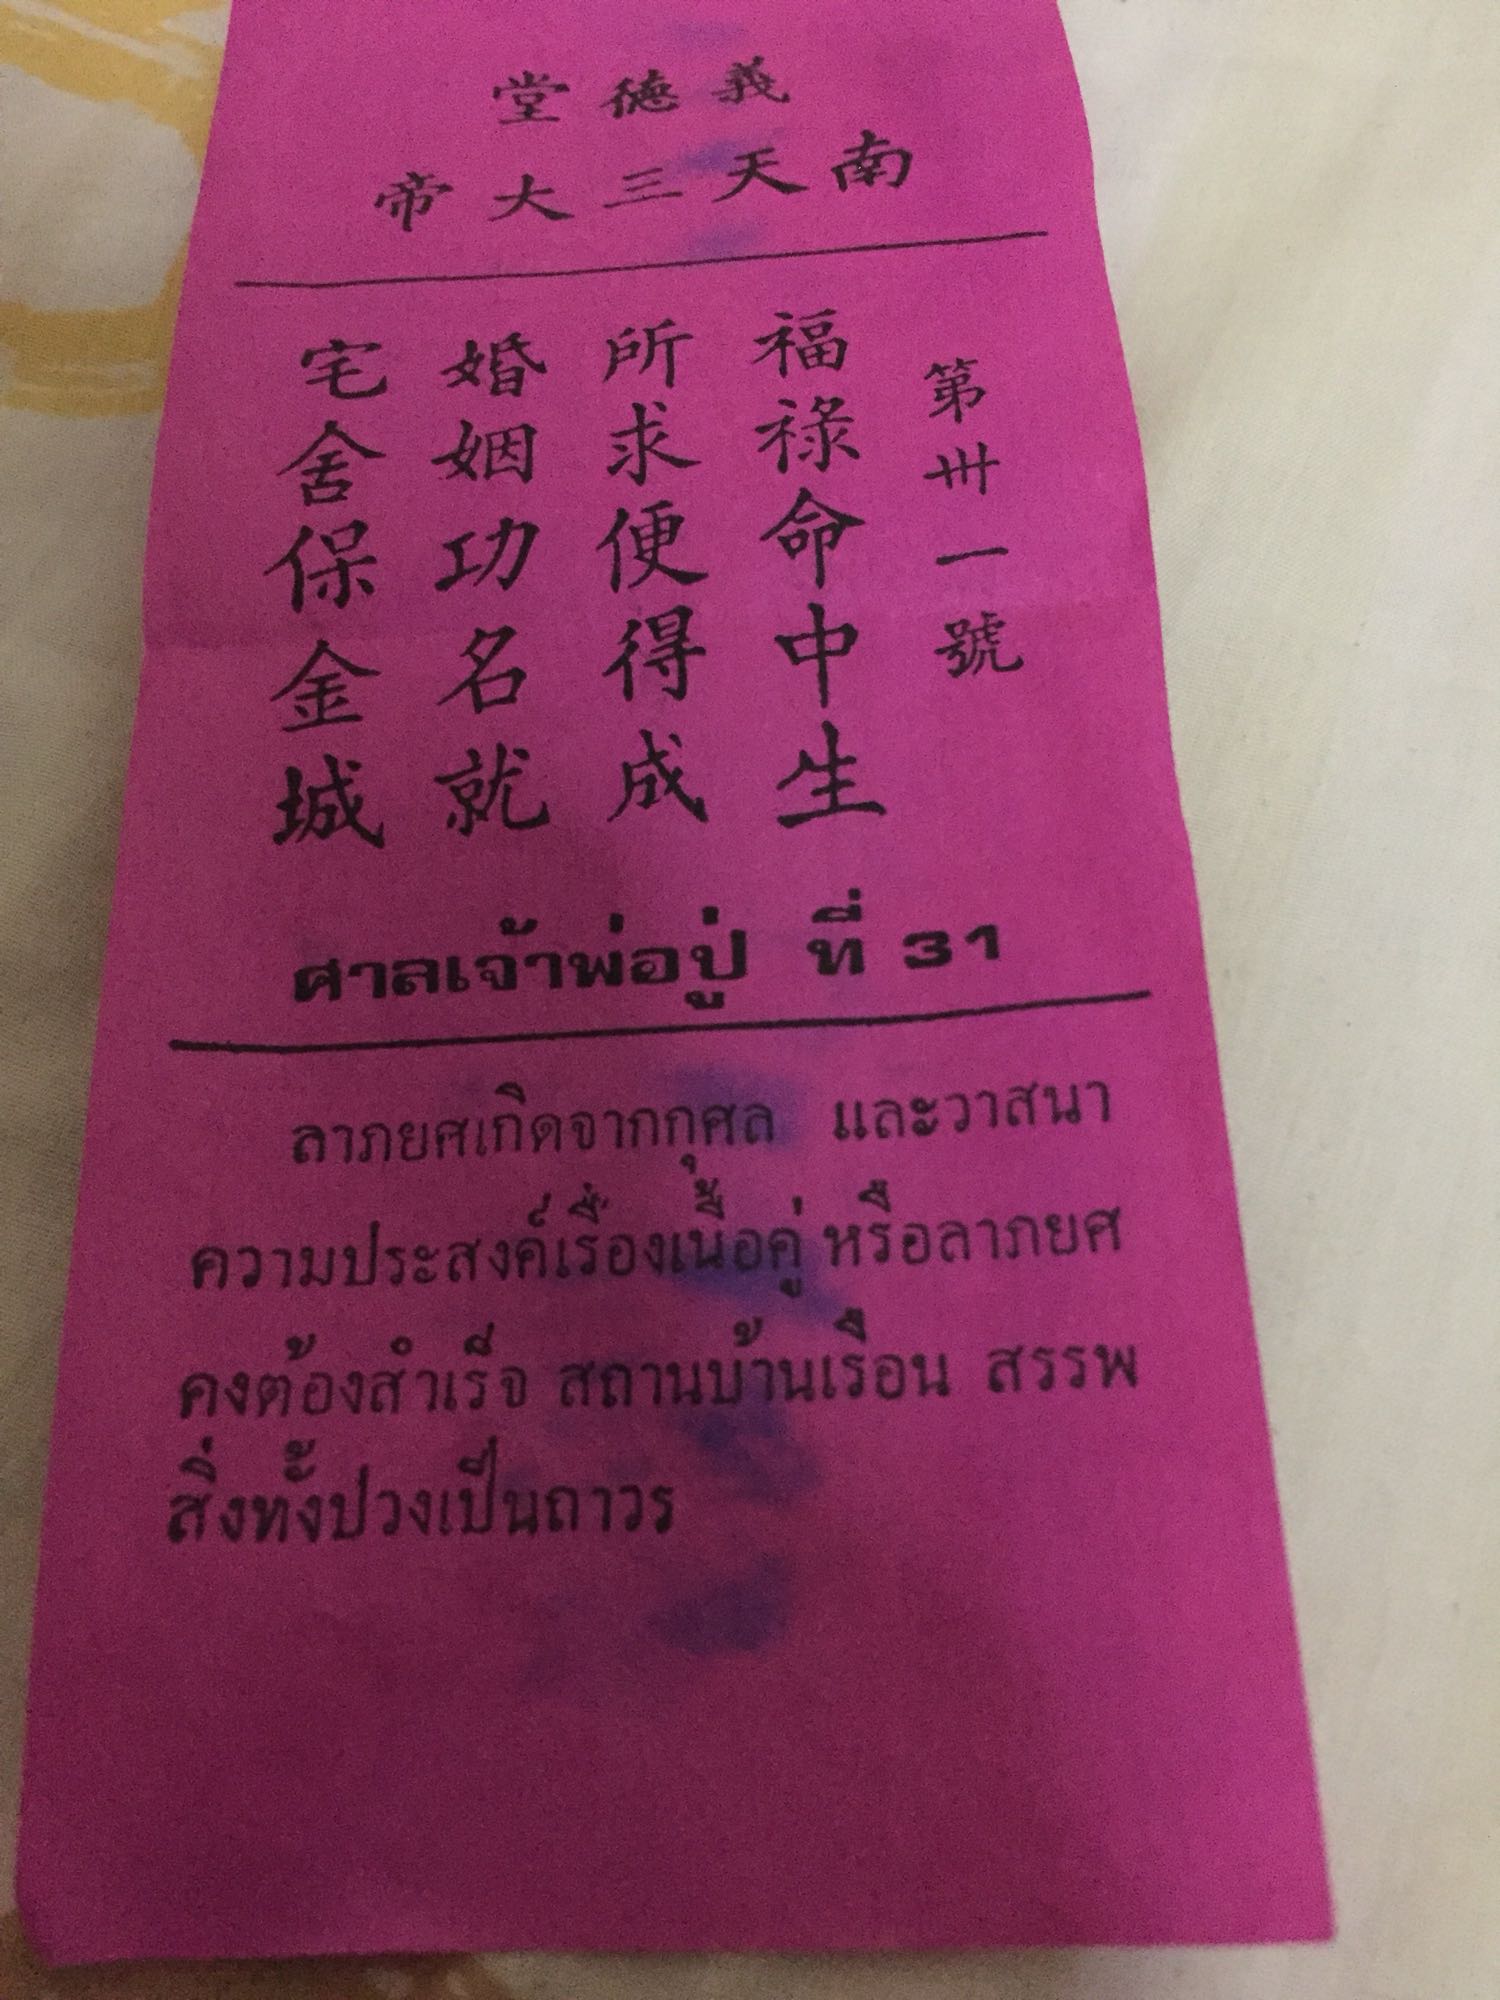 義德堂
南天三大帝
第卅一號
福祿命中生
所求便得成
婚姻功名就
宅舍保金城
ศาลเจ้าพ่อปู่ ที่ 31
ลาภยศเกิดจากกุศล และวาสนา
ความประสงค์เรื่องเนื้อคู่ หรือลาภยศ
คงต้องสำเร็จ สถานบ้านเรือน สรรพ
สิ่งทั้งปวงเป็นถาวร